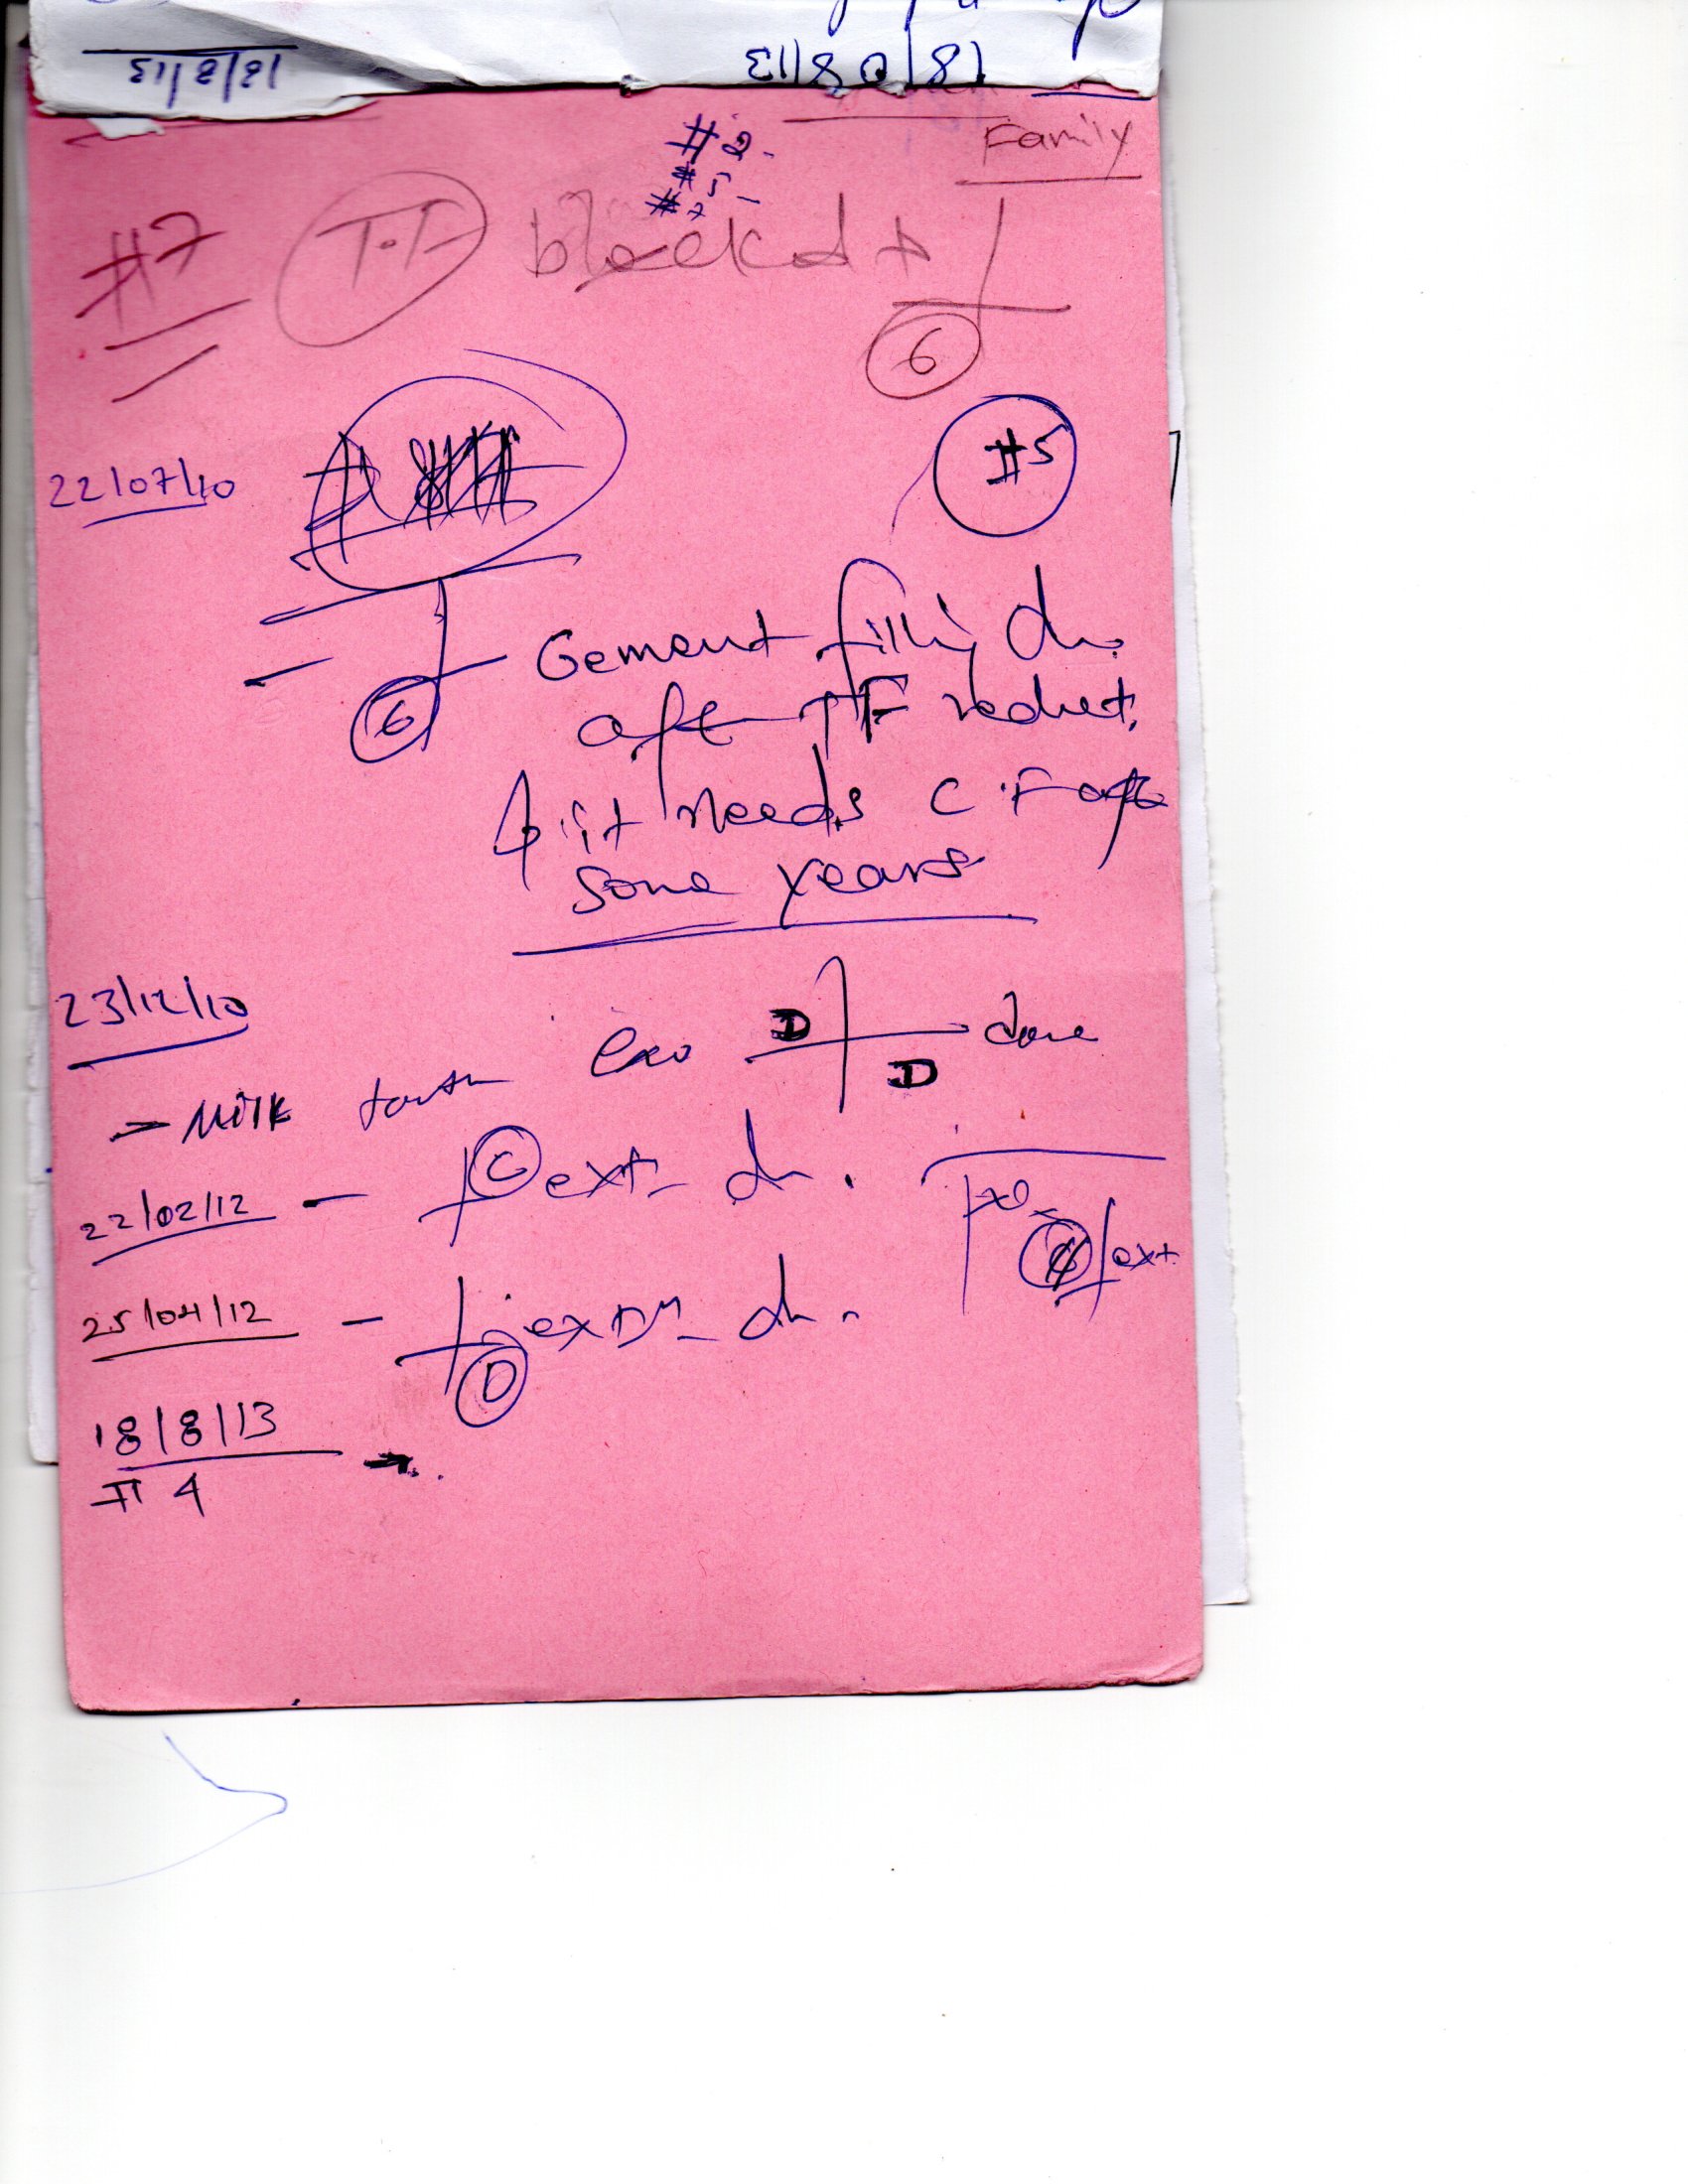 18/8/13
18/08/13
Family
#2-
#5-
#7
#7 T.F blocked
6
22/07/10
#5
6 Cement filling dn.
after TF reduct.
it needs C.F afte
some years
23/12/10
D
D done
→ Milk tooth exo
22/02/12 - C ext- dn.
ext.
25/04/12 - D extn- dn.
18/8/13 →
# 4